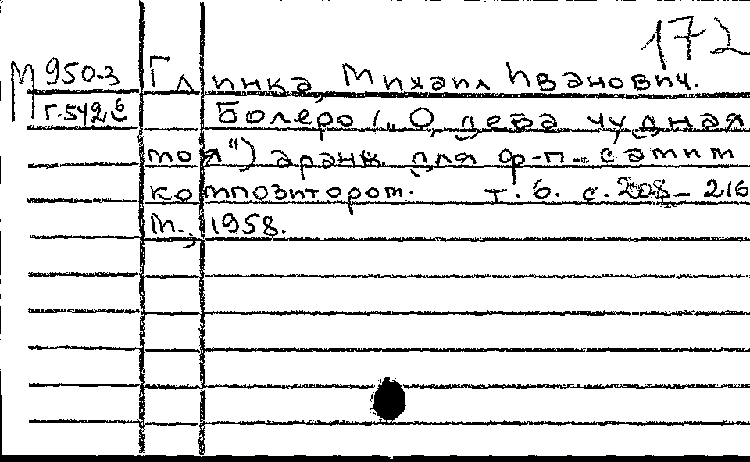 172
М 950-3 Глинка, Михаил Иванович.
Г-542 б Болеро („О, дева чудная
моя“) аранж. для ф-п. самим
композитором. т. 6. с. 208-216
М., 1958.